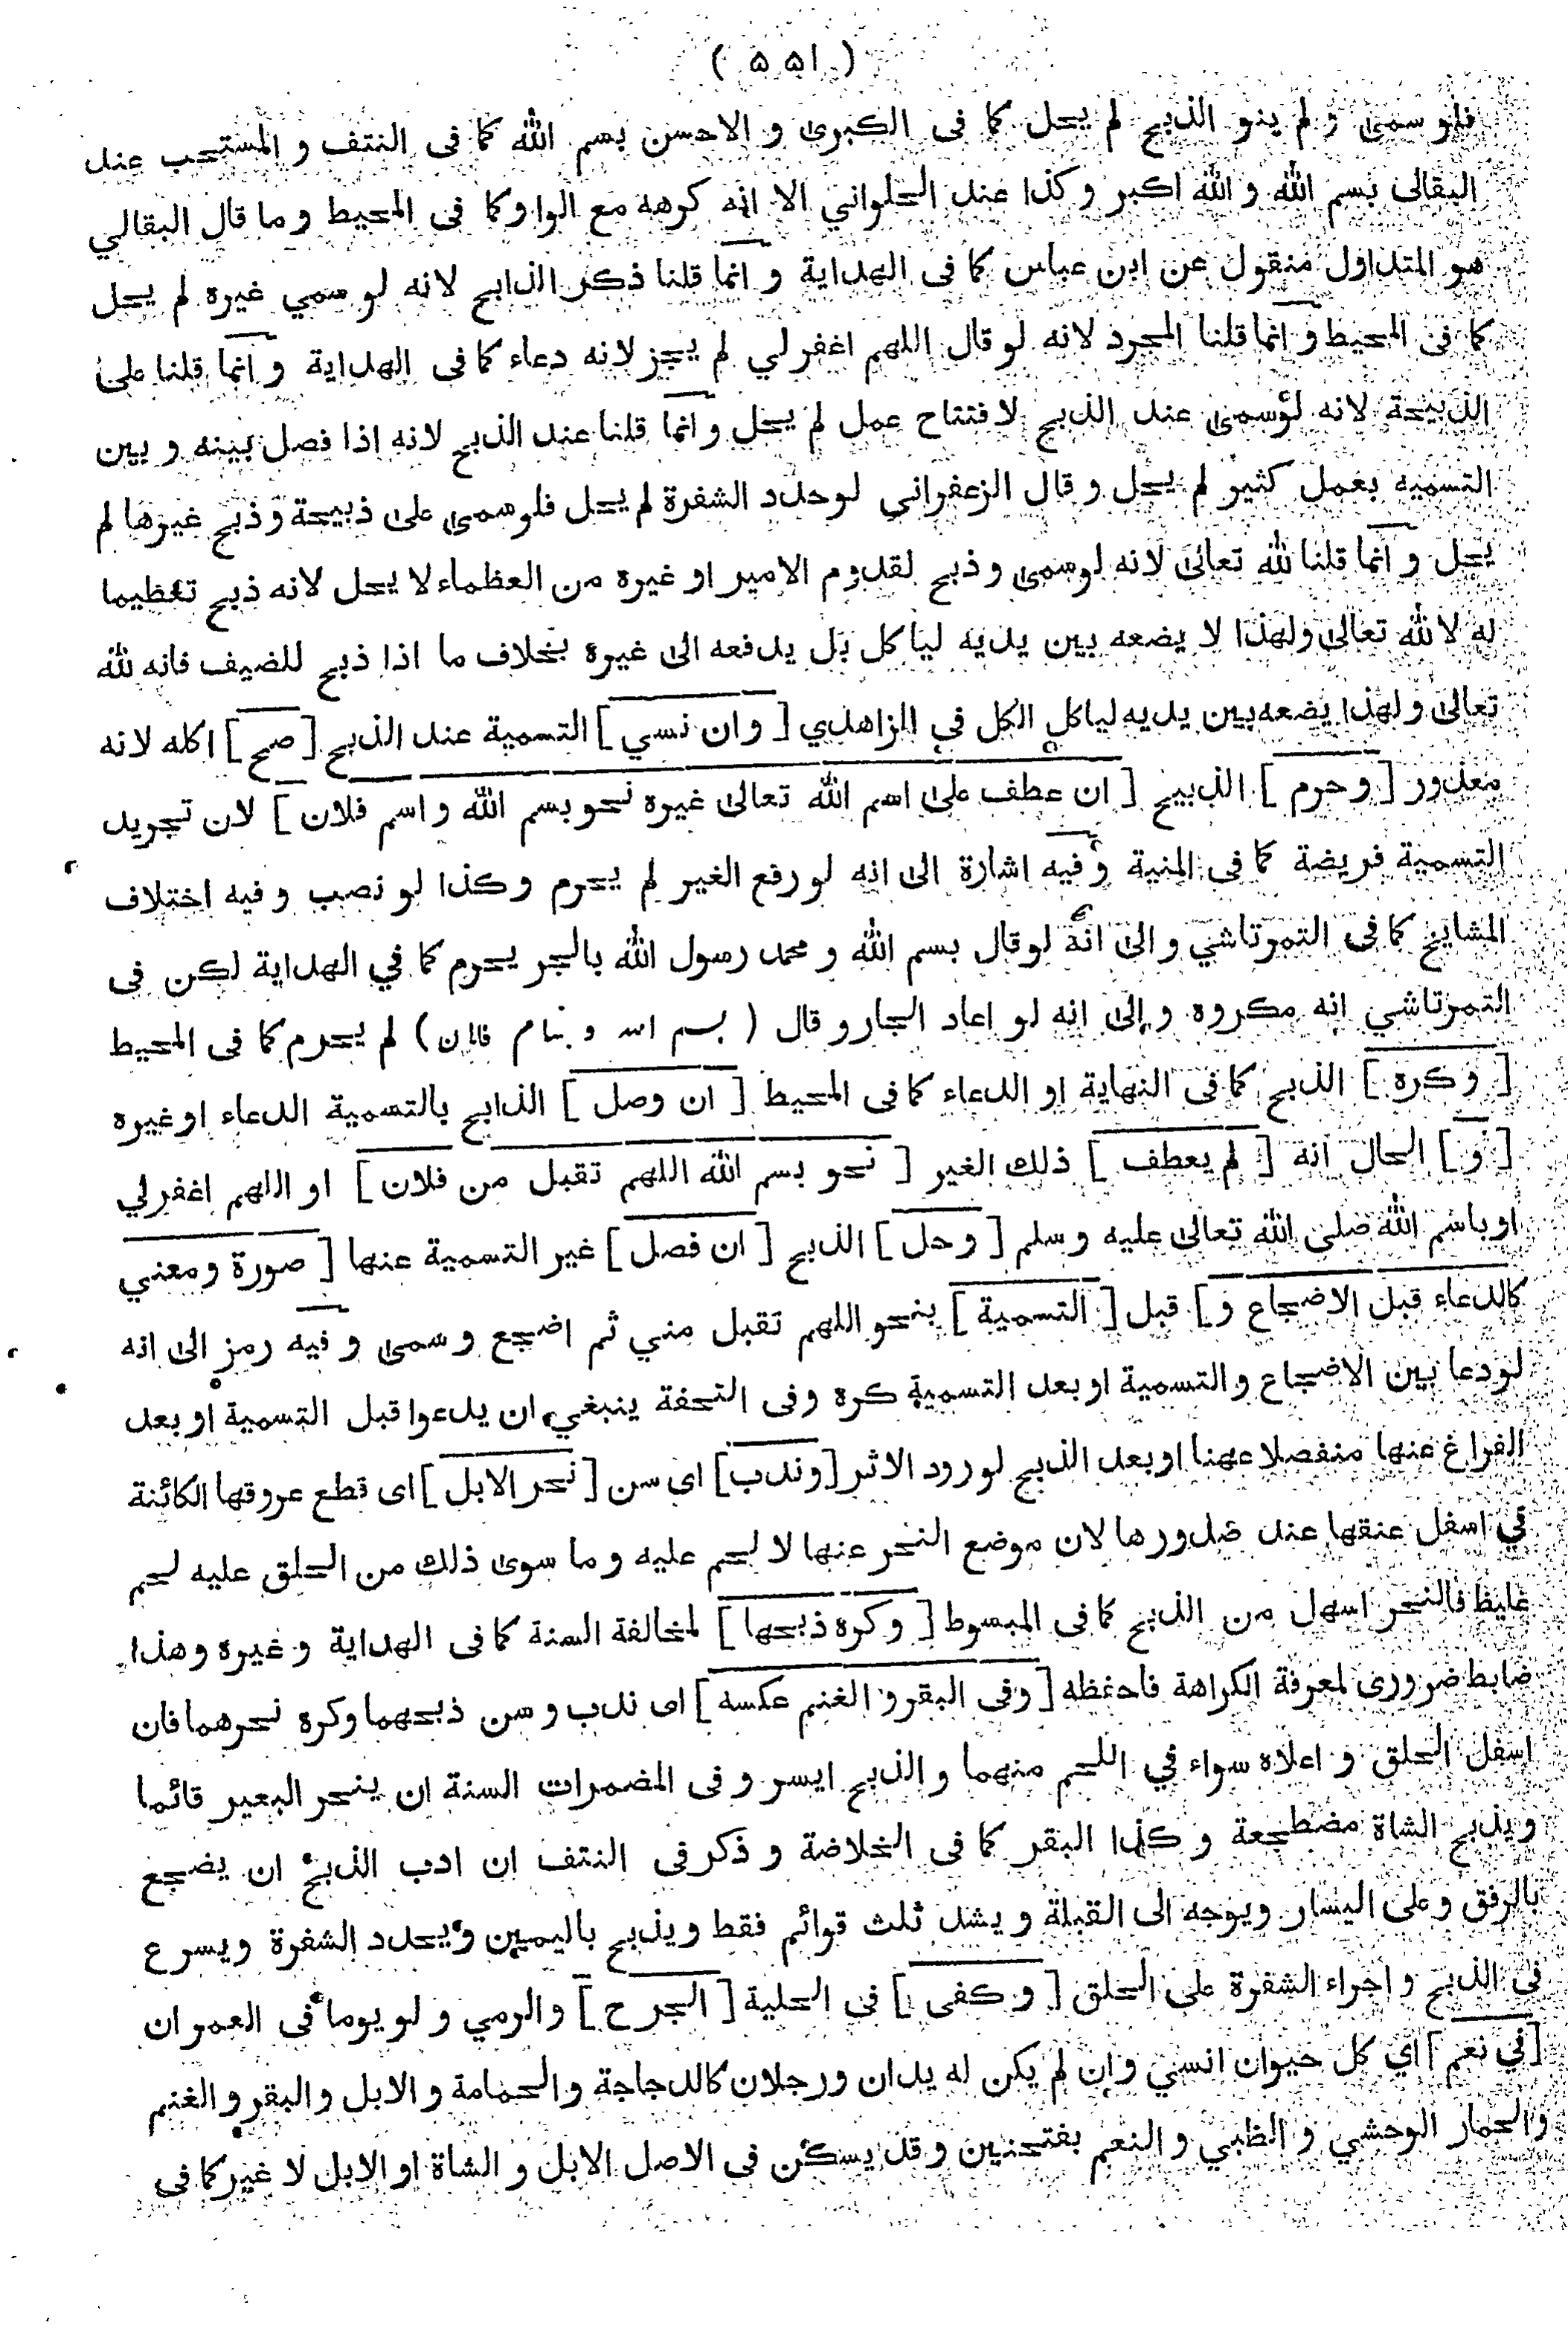 ( ۵۵۱ )
فلو سمى و لم ينو الذبح لم يحل كما فى الكبرى و الاحسن بسم الله كما فى النتف و المستحب عند
البقالى بسم الله و الله اكبر و كذا عند الحلواني الا انه كرهه مع الواو كما فى المحيط و ما قال البقالي
هو المتداول منقول عن ابن عباس كما فى الهداية و انما قلنا ذكر الذابح لانه لو سمي غيره لم يحل
كما فى المحيط و انما قلنا المجرد لانه لو قال اللهم اغفر لي لم يجز لانه دعاء كما فى الهداية و انما قلنا على
الذبيحة لانه لو سمى عند الذبح لافتتاح عمل لم يحل و انما قلنا عند الذبح لانه اذا فصل بينه و بين
التسمية بعمل كثير لم يحل و قال الزعفراني لو حدد الشفرة لم يحل فلو سمى على ذبيحة و ذبح غيرها لم
يحل و انما قلنا لله تعالى لانه لو سمى و ذبح لقدوم الامير او غيره من العظماء لا يحل لانه ذبح تعظيما
له لا لله تعالى ولهذا لا يضعه بين يديه لياكل بل يدفعه الى غيره بخلاف ما اذا ذبح للضيف فانه لله
تعالى و لهذا يضعه بين يديه لياكل الكل في الزاهدي [ وان نسي ] التسمية عند الذبح [ صح ] اكله لانه
معذور [ و حرم ] الذبيح [ ان عطف على اسم الله تعالى غيره نحو بسم الله و اسم فلان ] لان تجريد
التسمية فريضة كما فى المنية و فيه اشارة الى انه لو رفع الغير لم يحرم و كذا لو نصب و فيه اختلاف
المشايخ كما فى التمرتاشي و الى انه لو قال بسم الله و محمد رسول الله بالجر يحرم كما في الهداية لكن فى
التمرتاشي انه مكروه و الى انه لو اعاد الجار و قال ( بسم الله و بنام فلان ) لم يحرم كما فى المحيط
[ و كره ] الذبح كما فى النهاية او الدعاء كما فى المحيط [ ان وصل ] الذابح بالتسمية الدعاء او غيره
[ و ] الحال انه [ لم يعطف ] ذلك الغير [ نحو بسم الله اللهم تقبل من فلان ] او اللهم اغفر لي
او باسم الله صلى الله تعالى عليه و سلم [ و حل ] الذبح [ ان فصل ] غير التسمية عنها [ صورة و معني
كالدعاء قبل الاضجاع و ] قبل [ التسمية ] بنحو اللهم تقبل مني ثم اضجع و سمى و فيه رمز الى انه
لو دعا بين الاضجاع و التسمية او بعد التسمية كره و فى التحفة ينبغي ان يدعوا قبل التسمية او بعد
الفراغ عنها منفصلا عهنا او بعد الذبح لورود الاثر [ و ندب ] اى سن [ نحر الابل ] اى قطع عروقها الكائنة
في اسفل عنقها عند صدورها لان موضع النحر عنها لا لحم عليه و ما سوى ذلك من الحلق عليه لحم
غليظ فالنحر اسهل من الذبح كما فى المبسوط [ و كره ذبحها ] لمخالفة السنة كما فى الهداية و غيره و هذا
ضابط ضرورى لمعرفة الكراهة فاحفظه [ و فى البقر و الغنم عكسه ] اى ندب و سن ذبحهما و كره نحرهما فان
اسفل الحلق و اعلاه سواء في اللحم منهما و الذبح ايسر و فى المضمرات السنة ان ينحر البعير قائما
و يذبح الشاة مضطجعة و كذا البقر كما فى الخلاصة و ذكر فى النتف ان ادب الذبح ان يضجع
بالرفق و على اليسار و يوجه الى القبلة و يشد ثلث قوائم فقط و يذبح باليمين و يحدد الشفرة و يسرع
فى الذبح و اجراء الشفرة على الحلق [ و كفى ] فى الحلية [ الجرح ] و الرمي و لو يوما فى العمران
[ في نعم ] اي كل حيوان انسي و ان لم يكن له يدان و رجلان كالدجاجة و الحمامة و الابل و البقر و الغنم
و الحمار الوحشي و الظبي و النعم بفتحتين و قد يسكن فى الاصل الابل و الشاة او الابل لا غير كما فى